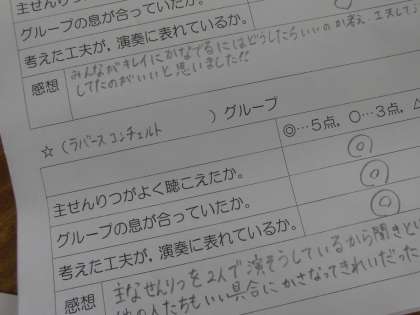 主せんりつがよく聴こえたか。
グループの息が合っていたか。
考えた工夫が、演奏に表れているか。
感想
みんながキレイにかなでるにはどうしたらいいのか考え、工夫して
してたのがいいと思いました!!
☆（ラバース コンチェルト　　　）グループ
◎…5点，○…3点，△
主せんりつがよく聴こえたか。 ◎
グループの息が合っていたか。 ◎
考えた工夫が、演奏に表れているか。 ◎
感想
主なせんりつを2人で演そうしているから聞きとい
他の人たちもいい具合にかさなってきれいだった